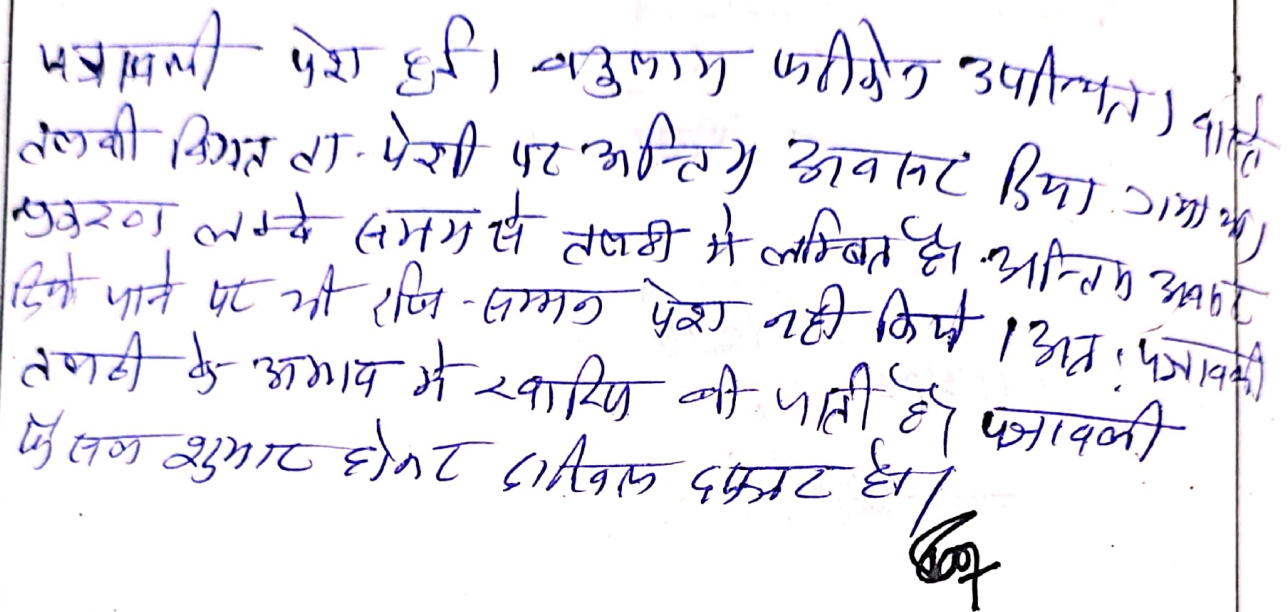 पत्रावली पेश हुई। वकुलाय फरीकेन उपस्थित। वास्ते
तलबी विगत ता. पेशी पर अन्तिम अवसर दिया गया था।
प्रकरण लम्बे समय से तलबी मे लम्बित है। अन्तिम अवसर
दिये जाने पर भी रजि. सम्मन पेश नही किये। अतः पत्रावली
तलबी के अभाव मे खारिज की जाती है। पत्रावली
फैसल शुमार होकर दाखिल दफ्तर हो।